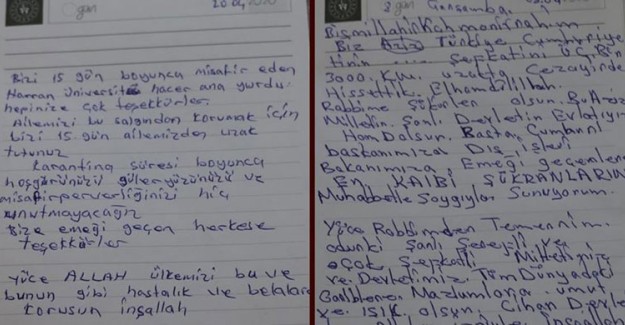 gün
20.04.2020
Bizi 15 gün boyunca misafir eden
Harran Üniversitesi hacer ana yurdu
hepinize çok teşekkürler.
Ailemizi bu salgından korumak için
bizi 15 gün ailemizden uzak
tutunuz
Karantina süresi boyunca
hoşgörünüzü güleryüzünüzü ve
misafirperverliğinizi hiç
unutmayacağız
Bize emeği geçen herkese
teşekkürler
Yüce ALLAH ülkemizi bu ve
bunun gibi hastalık ve belalardan
korusun inşallah
gün Çarşamba
BismillahirRahmanirrahim
Biz Aziz Türkiye Cumhuriye
tinin Şefkatini ÜÇ Bin
3000. Km. uzakta Cezayirde
Hissettik. Elhamdülillah.
Rabbime Şükürler olsun. Bu Aziz
Milletin. Şanlı Devletin Evladıyım
Hamdolsun. Başta Cumhur
başkanımıza Dış işleri
Bakanımıza. Emeği geçenlere
En KALBİ ŞÜKRANLARIMI
Muhabbetle Saygıyla Sunuyorum.
Yüce Rabbimden Temennim.
Şanlı
Şefkatli Milletimize
ve. Devletimiz. Tüm Dünyadaki
Mazlumlara. umut
ve. IŞIK. olsun. Cihan
inşallah